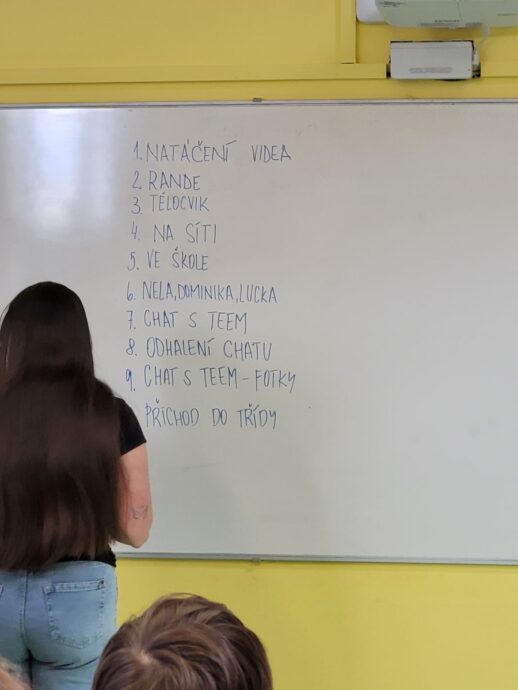 1. NATÁČENÍ VIDEA
2. RANDE
3. TĚLOCVIK
4. NA SÍTI
5. VE ŠKOLE
6. NELA, DOMINIKA, LUCKA
7. CHAT S TEEM
8. ODHALENÍ CHATU
9. CHAT S TEEM - FOTKY
PŘÍCHOD DO TŘÍDY